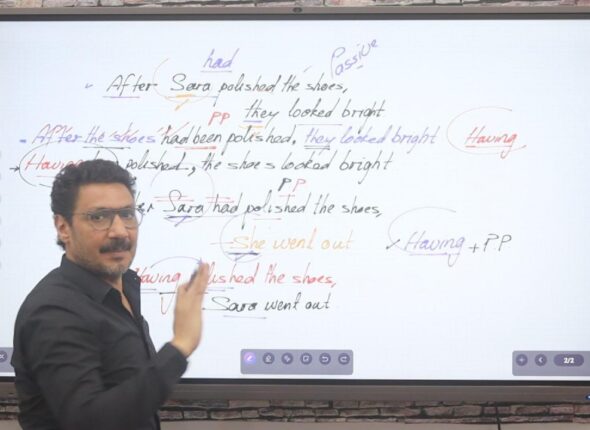 had Passive
After Sara polished the shoes,
PP they looked bright
After the shoes had been polished, they looked bright Having
Having polished, the shoes looked bright
PP
Sara had polished the shoes,
She went out Having + PP
Having polished the shoes,
Sara went out
2/2